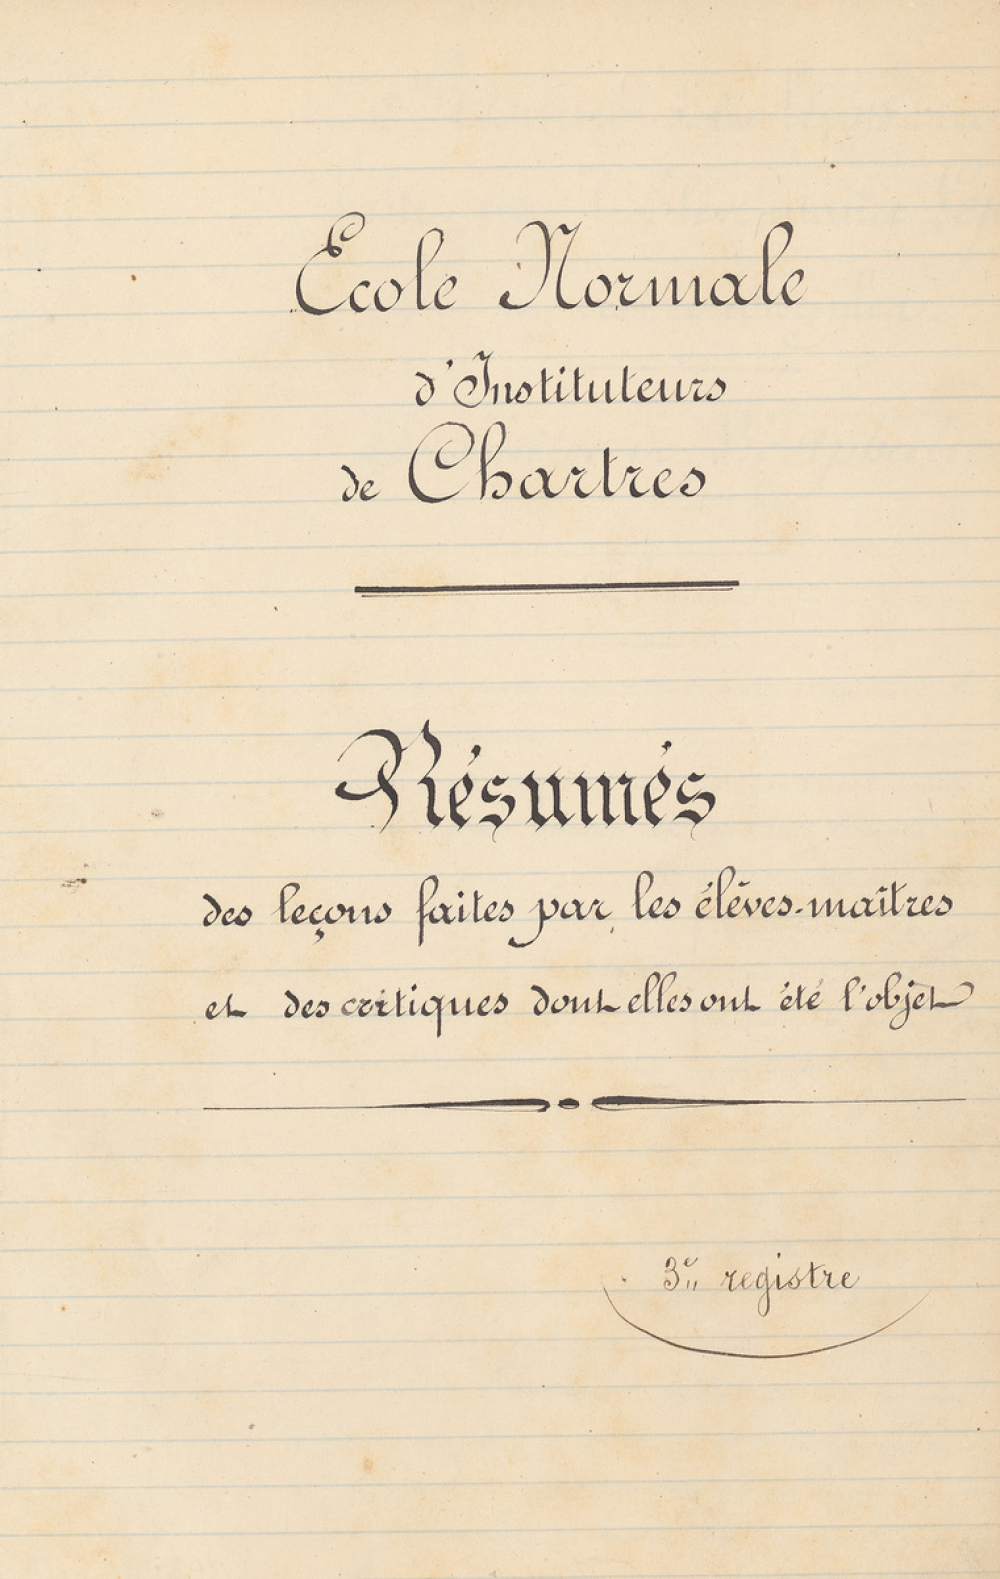 Ecole Normale
d'Instituteurs
de Chartres
Résumés
des leçons faites par les élèves-maîtres
et des critiques dont elles ont été l'objet
3e registre